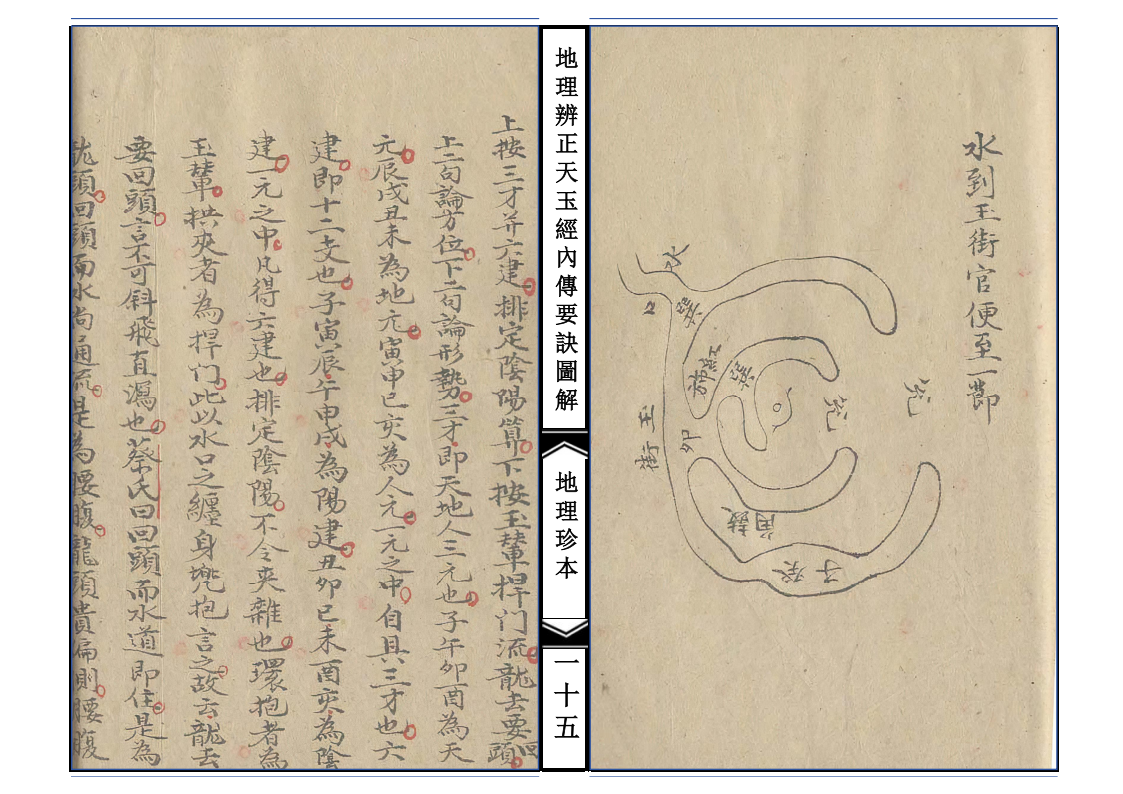 水到玉街官便至一節
水
口
巽
巽
兌
兌
玉
街
卯
鼓
角
子癸
地理辨正天玉經內傳要訣圖解
地理珍本
一十五
上按三才并六建排定陰陽算下按玉輦捍门流龍去要回頭
上二句論方位下二句論形勢三才即天地人三元也子午卯酉為天
元辰戌丑未為地元寅申巳亥為人元一元之中自具三才也六
建即十二支也子寅辰午申戌為陽建丑卯巳未酉亥為陰
建一元之中凡得六建也排定陰陽不令夾雜也環抱者為
玉輦拱夾者為捍门此以水口之纏身兠抱言之故云龍去
要回頭言不可斜飛直瀉也蔡氏曰回頭而水道即住是為
龍頭回頭而水尚通流是為腰腹龍頭貴偏則腰腹